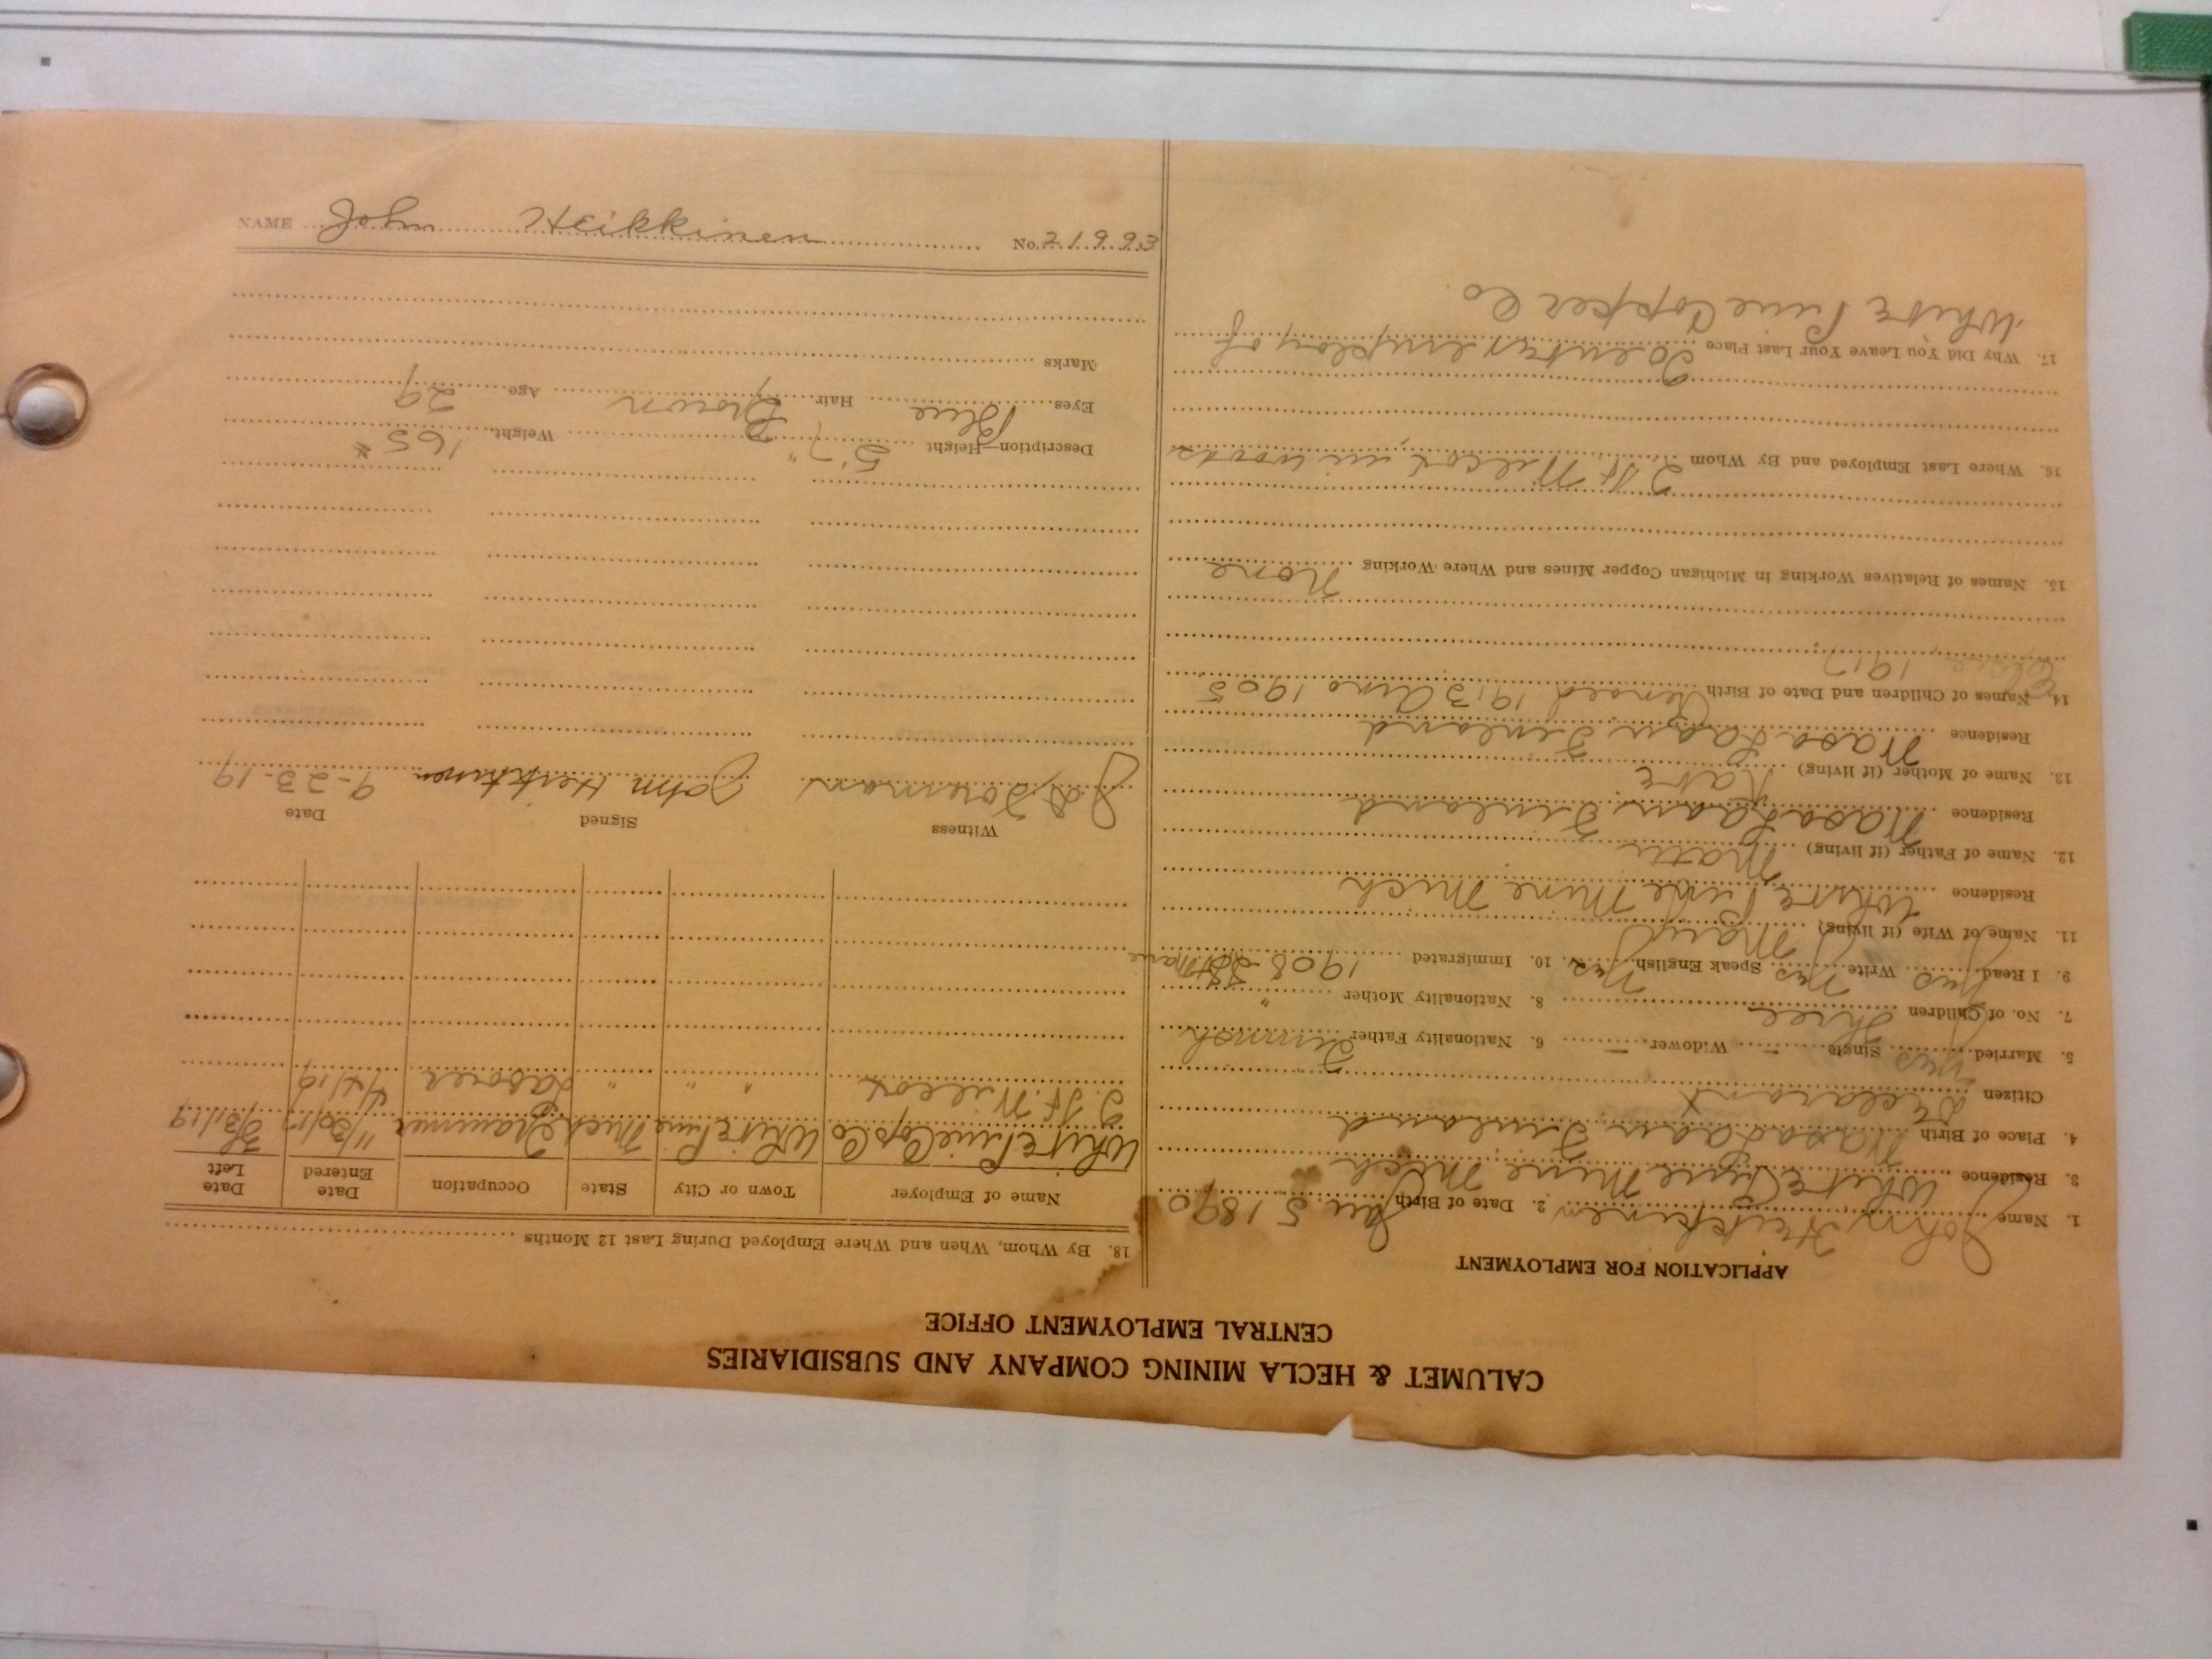 CALUMET & HECLA MINING COMPANY AND SUBSIDIARIES
CENTRAL EMPLOYMENT OFFICE
APPLICATION FOR EMPLOYMENT
1. Name John Heikkinen 2. Date of Birth Jan 5 1890
3. Residence White Pine Mine Mich
4. Place of Birth Vasa Laan Finland
Citizen Declarant
5. Married Yes Single – Widower – 6. Nationality Father Finnish
7. No. of Children Three 8. Nationality Mother "
9. I Read Yes Write Yes Speak English Yes 10. Immigrated 1908
11. Name of Wife (if living) Mary
Residence White Pine Mine Mich
12. Name of Father (if living) Matti
Residence Vasa Laan Finland
13. Name of Mother (if living)
Residence Vasa Laan Finland
14. Names of Children and Date of Birth 1913 1905
1917
15. Names of Relatives Working in Michigan Copper Mines and Where Working None
16. Where Last Employed and By Whom Wilcox in woods
17. Why Did You Leave Your Last Place To enter employ of
White Pine Copper Co
18. By Whom, When and Where Employed During Last 12 Months
Name of Employer Town or City State Occupation Date Entered Date Left
White Pine Cop Co White Pine Mich Trammer 11/30/17 3/31/19
Wilcox " " Laborer 4/4/19
Witness Signed Date
Foreman John Heikkinen 9-23-19
Description—Height 5' 7" Weight 165 #
Eyes Blue Hair Brown Age 29
Marks
NAME John Heikkinen No. 21993